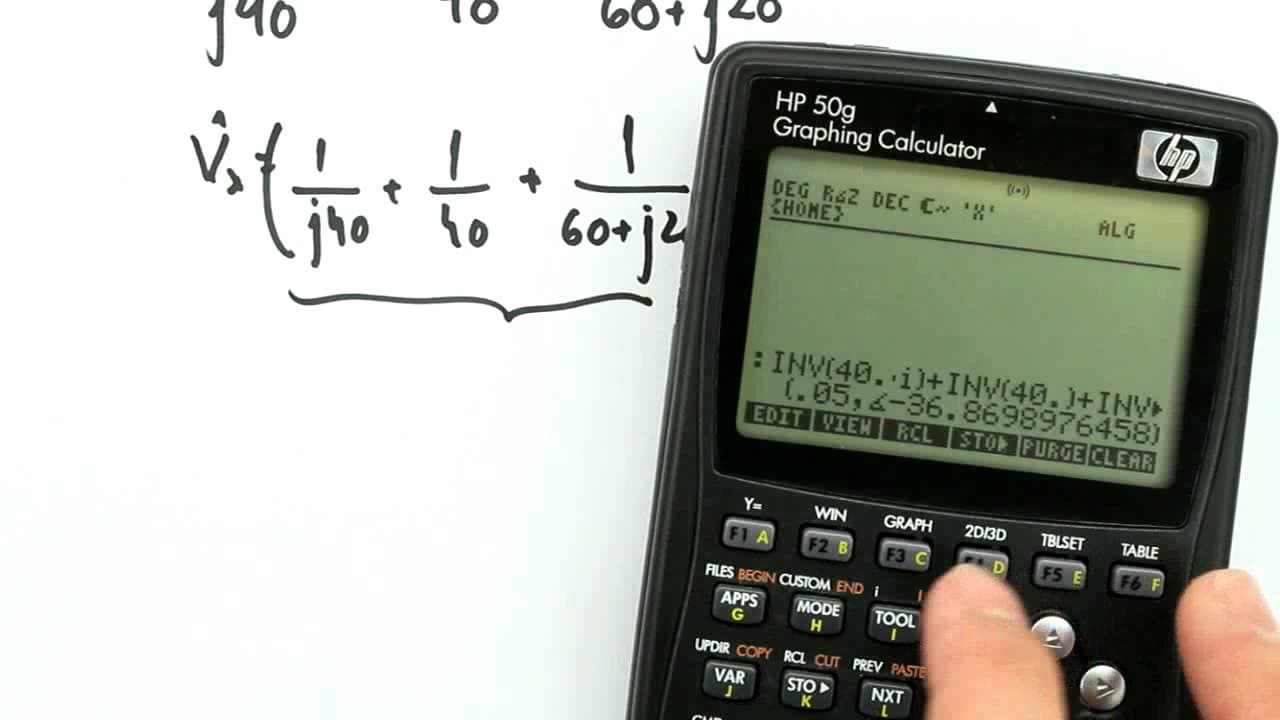 j40 40 60+j20
V̂ₓ ( 1/j40 + 1/40 + 1/60+j2
HP 50g
Graphing Calculator
hp
DEG R∡Z DEC C~ 'X'
{HOME} ALG
:INV(40.·i)+INV(40.)+INV▶
(.05,∡-36.8698976458)
EDIT VIEW RCL STO▶ PURGE CLEAR
Y= WIN GRAPH 2D/3D TBLSET TABLE
F1 A F2 B F3 C D F5 E F6 F
FILES BEGIN CUSTOM END i
APPS G MODE H TOOL I
UPDIR COPY RCL CUT PREV PASTE
VAR J STO▶ K NXT L